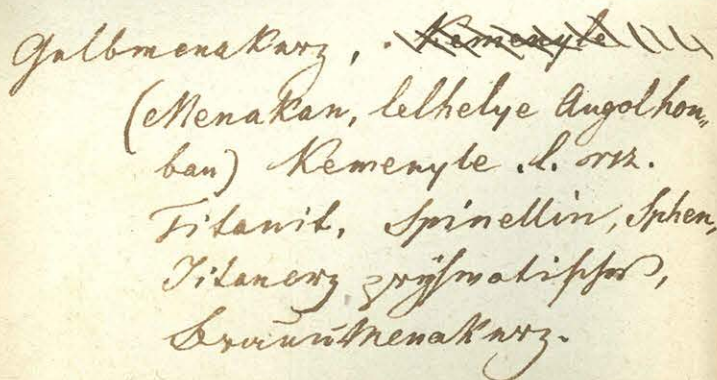 Gelbmenakerz, . Kemenyle
(Menakan, lelhelye Angolhon„
ban) Kemenyle .l. orsz.
Titanit, Spinellin, Sphen,
Titanerz prysmatisches,
Braunmenakerz.